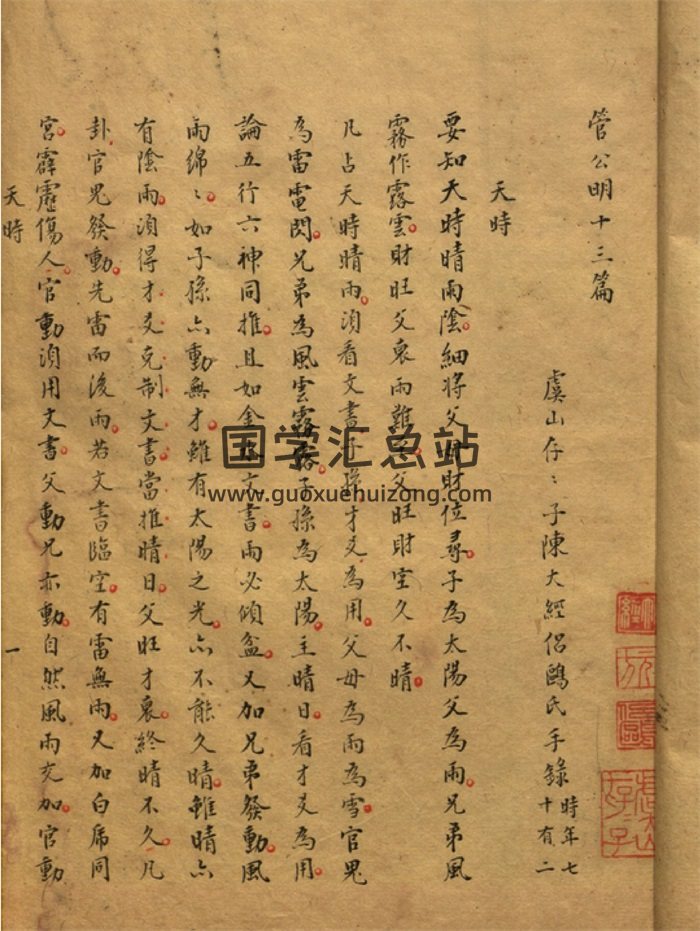 管公明十三篇
虞山存〻子陳大經侶鷗氏手錄時年七十有二
天時
要知天時晴雨陰細將父母財位尋子為太陽父為雨兄弟風
霧作露雲財旺父衰雨難父旺財空久不晴
凡占天時晴雨湏看文書子孫才爻為用父母為雨為雪官鬼
為雷電閃兄弟為風雲露子孫為太陽主晴日看才爻為用
論五行六神同推且如金水文書雨必傾盆又加兄弟發動風
雨綿〻如子孫亦動無才雖有太陽之光亦不能久晴雖晴亦
有陰雨湏得才爻克制文書當推晴日父旺才衰終晴不久凡
卦官鬼發動先雷而後雨若文書臨空有雷無雨又加白虎同
宮霹靂傷人官動湏用文書父動兄亦動自然風雨交加官動
天時
一
国学汇总站
www.guoxuehuizong.com